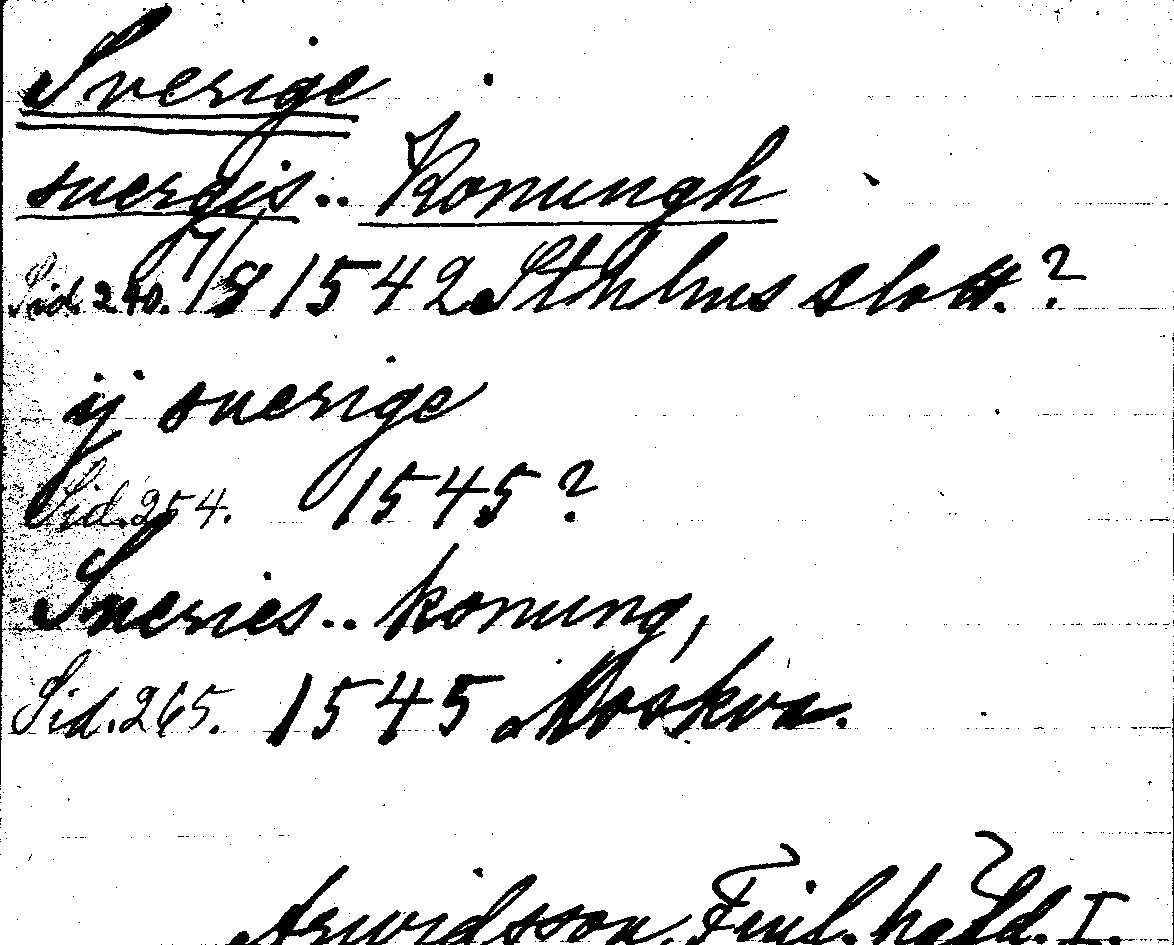 Sverige
suergis.. Konungh
Sid. 240. 7/8 1542 Sthlms slott.?
ij suerige
Sid. 254. 1545?
Sueries.. konung,
Sid. 265. 1545 Moskva.
Arwidsson, Finl. häfd. I.